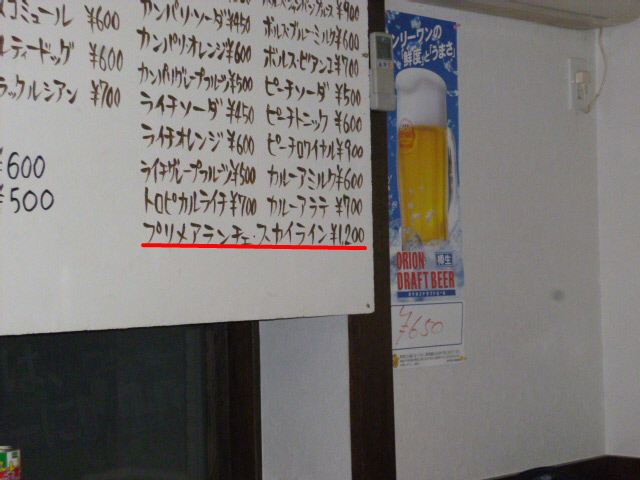 スコミュール ¥600
ルティードッグ ¥600
ラックルシアン ¥700
¥600
¥500
カンパリソーダ ¥450
カンパリオレンジ ¥600
カンパリグレープフルーツ ¥500
ライチソーダ ¥450
ライチオレンジ ¥600
ライチグレープフルーツ ¥500
トロピカルライチ ¥700
¥900
ボルスブルーミルク ¥600
ボルス・ビアンコ ¥700
ピーチソーダ ¥500
ピーチトニック ¥600
ピーチロワイヤル ¥900
カルーアミルク ¥600
カルーアラテ ¥700
プリメアランチェ・スカイライン ¥1,200
ンリーワンの
「鮮度」と「うまさ」
ORION
樽生
DRAFT BEER
¥650